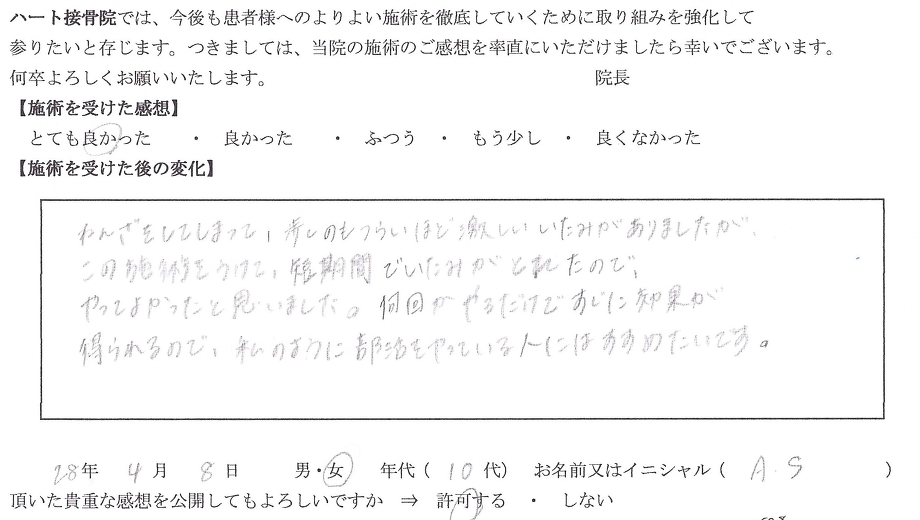 ハート接骨院では、今後も患者様へのよりよい施術を徹底していくために取り組みを強化して
参りたいと存じます。つきましては、当院の施術のご感想を率直にいただけましたら幸いでございます。
何卒よろしくお願いいたします。 院長
【施術を受けた感想】
とても良かった ・ 良かった ・ ふつう ・ もう少し ・ 良くなかった
【施術を受けた後の変化】
ねんざをしてしまって、歩くのもつらいほど激しいいたみがありましたが、
この施術をうけて、短期間でいたみがとれたので、
やってよかったと思いました。何回かやるだけですぐに効果が
得られるので、私のように部活をやっている人にはすすめたいです。
28年 4月 8日 男・女 年代(10代) お名前又はイニシャル(A.S)
頂いた貴重な感想を公開してもよろしいですか ⇒ 許可する ・ しない